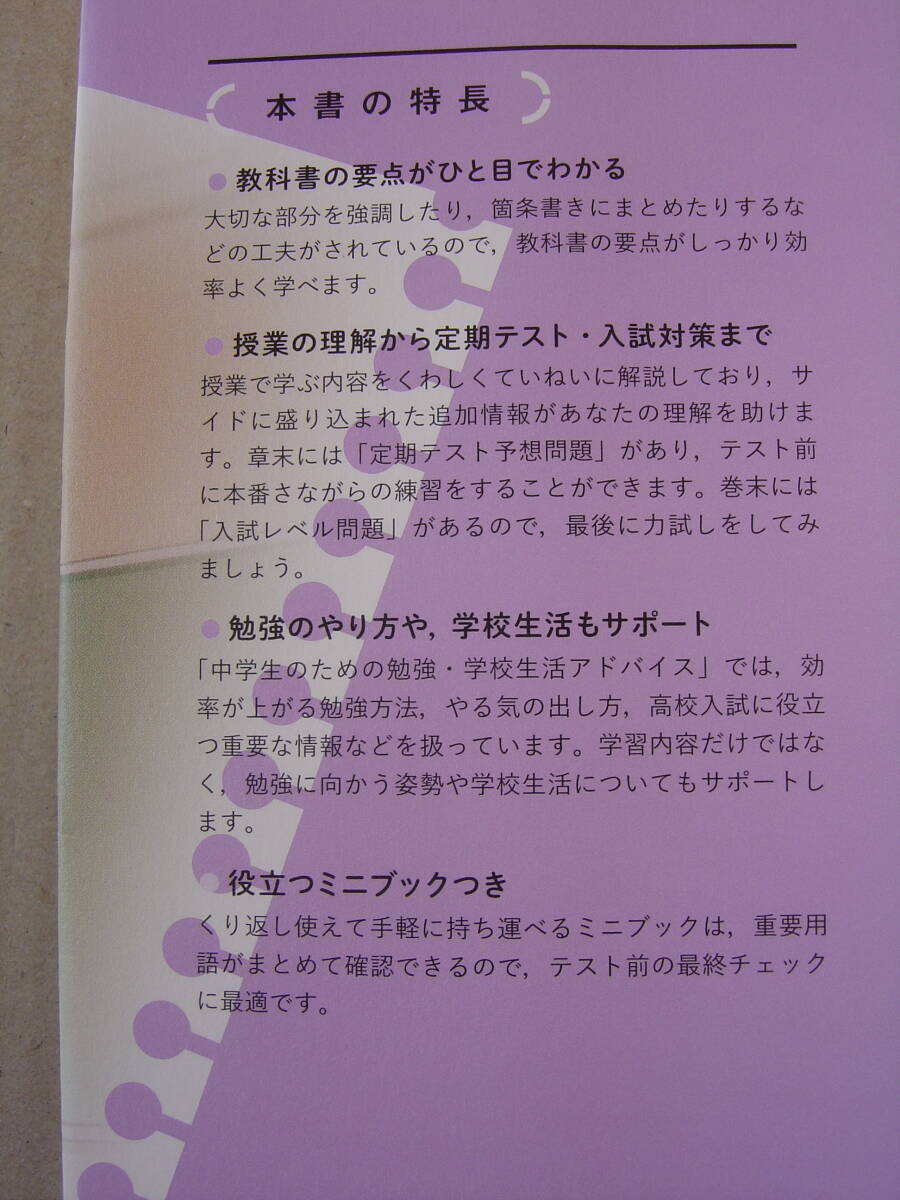 本書の特長
教科書の要点がひと目でわかる
大切な部分を強調したり，箇条書きにまとめたりするな
どの工夫がされているので，教科書の要点がしっかり効
率よく学べます。
授業の理解から定期テスト・入試対策まで
授業で学ぶ内容をくわしくていねいに解説しており，サ
イドに盛り込まれた追加情報があなたの理解を助けま
す。章末には「定期テスト予想問題」があり，テスト前
に本番さながらの練習をすることができます。巻末には
「入試レベル問題」があるので，最後に力試しをしてみ
ましょう。
勉強のやり方や，学校生活もサポート
「中学生のための勉強・学校生活アドバイス」では，効
率が上がる勉強方法，やる気の出し方，高校入試に役立
つ重要な情報などを扱っています。学習内容だけではな
く，勉強に向かう姿勢や学校生活についてもサポートし
ます。
役立つミニブックつき
くり返し使えて手軽に持ち運べるミニブックは，重要用
語がまとめて確認できるので，テスト前の最終チェック
に最適です。